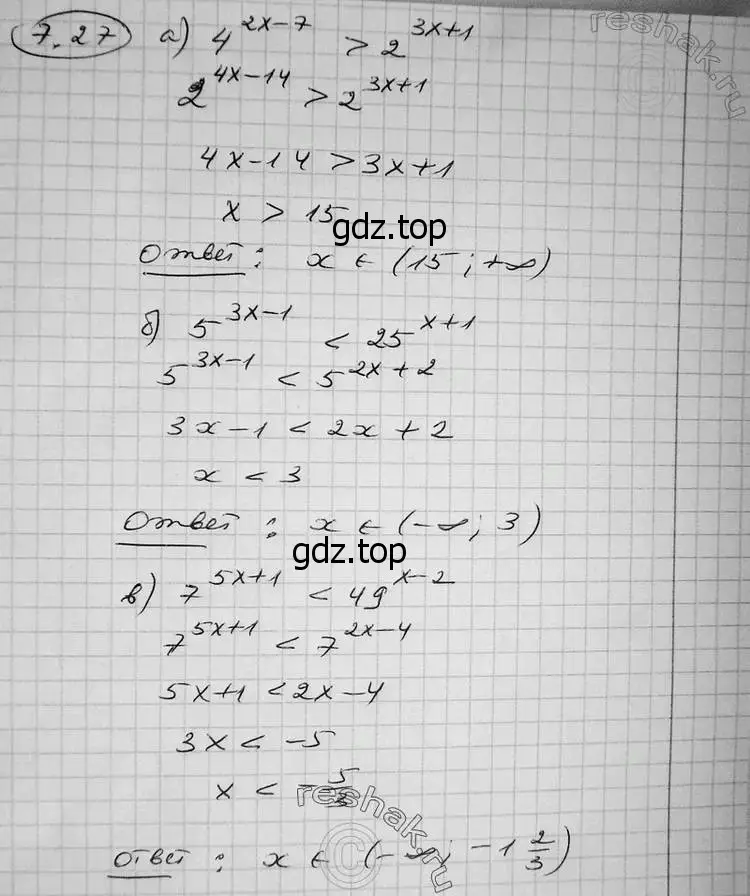 7.27 а) 4^{2x-7} > 2^{3x+1}
2^{4x-14} > 2^{3x+1}
4x-14 > 3x+1
x > 15
gdz.top
Ответ: x ∈ (15; +∞)
б) 5^{3x-1} < 25^{x+1}
5^{3x-1} < 5^{2x+2}
3x-1 < 2x+2
x < 3
Ответ: x ∈ (-∞; 3)
gdz.top
в) 7^{5x+1} < 49^{x-2}
7^{5x+1} < 7^{2x-4}
5x+1 < 2x-4
3x < -5
x < -5/3
Ответ: x ∈ (-∞; -1 2/3)
reshak.ru
reshak.ru